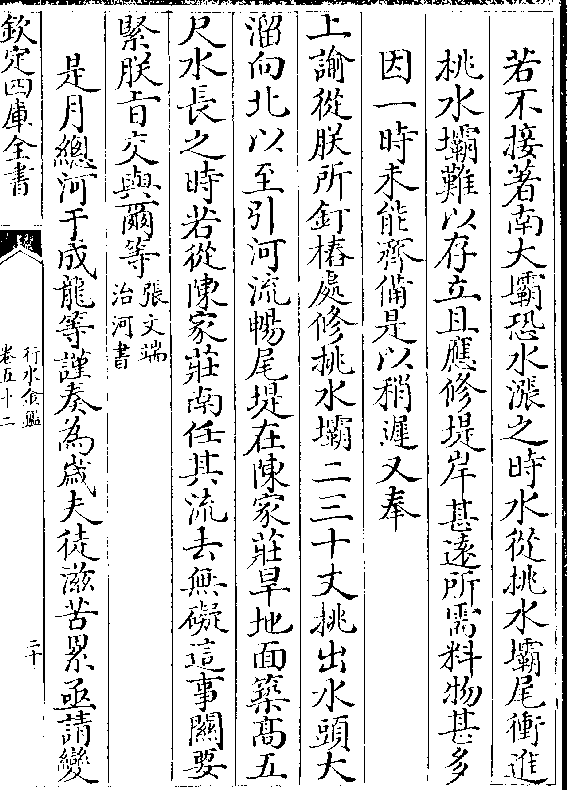 若不接著南大壩恐水漲之時水從挑水壩尾衝進
桃水壩難以存立且應修堤岸甚遠所需料物甚多
因一時未能齊備是以稍遲又奉
上諭從朕所釘樁處修挑水壩二三十丈挑出水頭大
溜向北以至引河流暢尾堤在陳家莊旱地面築高五
尺水長之時若從陳家莊南任其流去無礙這事關要
緊朕旨交與爾等張文端治河書
是月總河于成龍等謹奏為歲夫徒滋苦累亟請變
欽定四庫全書
行水金鑑
卷五十二
二十